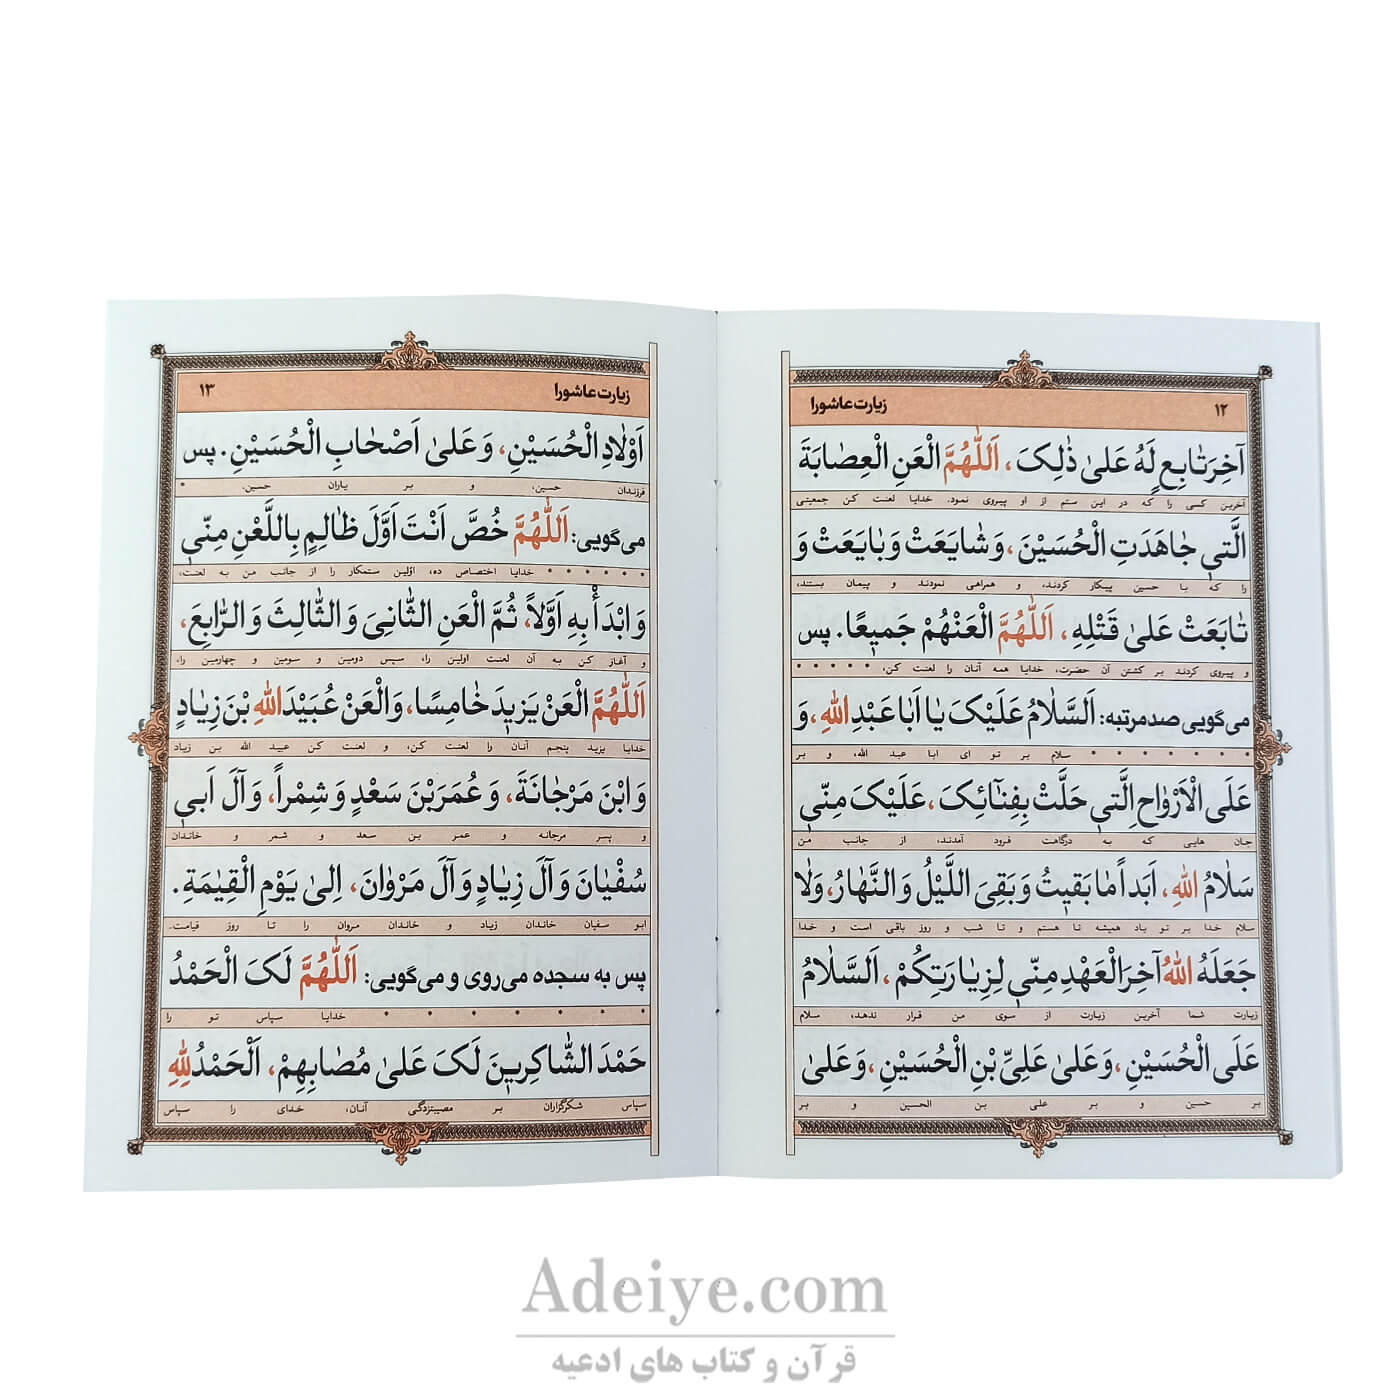 ۱۲ زیارت عاشورا
آخِرَ تٰابِعٍ لَهُ عَلیٰ ذٰلِکَ، اَللّٰهُمَّ الْعَنِ الْعِصٰابَةَ
آخرین کسی را که در این ستم از او پیروی نمود. خدایا لعنت کن جمعیتی
الَّتي جٰاهَدَتِ الْحُسَیْنَ، وَ شٰایَعَتْ وَ بٰایَعَتْ وَ
را که با حسین پیکار کردند، و همراهی نمودند و پیمان بستند،
تٰابَعَتْ عَلیٰ قَتْلِهِ، اَللّٰهُمَّ الْعَنْهُمْ جَمیعًا. پس
و پیروی کردند بر کشتن آن حضرت، خدایا همه آنان را لعنت کن،
می‌گویی صد مرتبه: اَلسَّلٰامُ عَلَیْکَ یٰا اَبٰا عَبْدِ اللّٰهِ، وَ
سلام بر تو ای ابا عبد الله، و بر
عَلَی الْاَرْوٰاحِ الَّتي حَلَّتْ بِفِنٰائِکَ، عَلَیْکَ مِنّي
جان هایی که به درگاهت فرود آمدند، از جانب من
سَلٰامُ اللّٰهِ، اَبَداً مٰا بَقیتُ وَ بَقِیَ اللَّیْلُ وَ النَّهٰارُ، وَ لٰا
سلام خدا بر تو باد همیشه تا هستم و تا شب و روز باقی است و خدا
جَعَلَهُ اللّٰهُ آخِرَ الْعَهْدِ مِنّي لِزِیٰارَتِکُمْ، اَلسَّلٰامُ
زیارت شما آخرین زیارت از سوی من قرار ندهد، سلام
عَلَی الْحُسَیْنِ، وَ عَلیٰ عَلِیِّ بْنِ الْحُسَیْنِ، وَ عَلیٰ
بر حسین و بر علی بن الحسین و بر
زیارت عاشورا ۱۳
اَوْلٰادِ الْحُسَیْنِ، وَ عَلیٰ اَصْحٰابِ الْحُسَیْنِ. پس
فرزندان حسین، و بر یاران حسین.
می‌گویی: اَللّٰهُمَّ خُصَّ اَنْتَ اَوَّلَ ظٰالِمٍ بِاللَّعْنِ مِنّي
خدایا اختصاص ده، اوّلین ستمکار را از جانب من به لعنت،
وَ ابْدَأْ بِهِ اَوَّلاً، ثُمَّ الْعَنِ الثّٰانِیَ وَ الثّٰالِثَ وَ الرّٰابِعَ،
و آغاز کن به آن لعنت اولین را، سپس دومین و سومین و چهارمین را،
اَللّٰهُمَّ الْعَنْ یَزیدَ خٰامِسًا، وَ الْعَنْ عُبَیْدَ اللّٰهِ بْنَ زِیٰادٍ
خدایا یزید پنجم آنان را لعنت کن، و لعنت کن عبید الله بن زیاد
وَ ابْنَ مَرْجٰانَةَ، وَ عُمَرَ بْنَ سَعْدٍ وَ شِمْراً، وَ آلَ اَبي
و پسر مرجانه و عمر بن سعد و شمر و خاندان
سُفْیٰانَ وَ آلَ زِیٰادٍ وَ آلَ مَرْوٰانَ، اِلیٰ یَوْمِ الْقِیٰمَةِ.
ابو سفیان خاندان زیاد و خاندان مروان را تا روز قیامت.
پس به سجده می‌روی و می‌گویی: اَللّٰهُمَّ لَکَ الْحَمْدُ
خدایا سپاس تو را
حَمْدَ الشّٰاکِرینَ لَکَ عَلیٰ مُصٰابِهِمْ، اَلْحَمْدُ لِلّٰهِ
سپاس شکرگزاران بر مصیبتزدگی آنان، خدای را سپاس
Adeiye.com
قرآن و کتاب های ادعیه